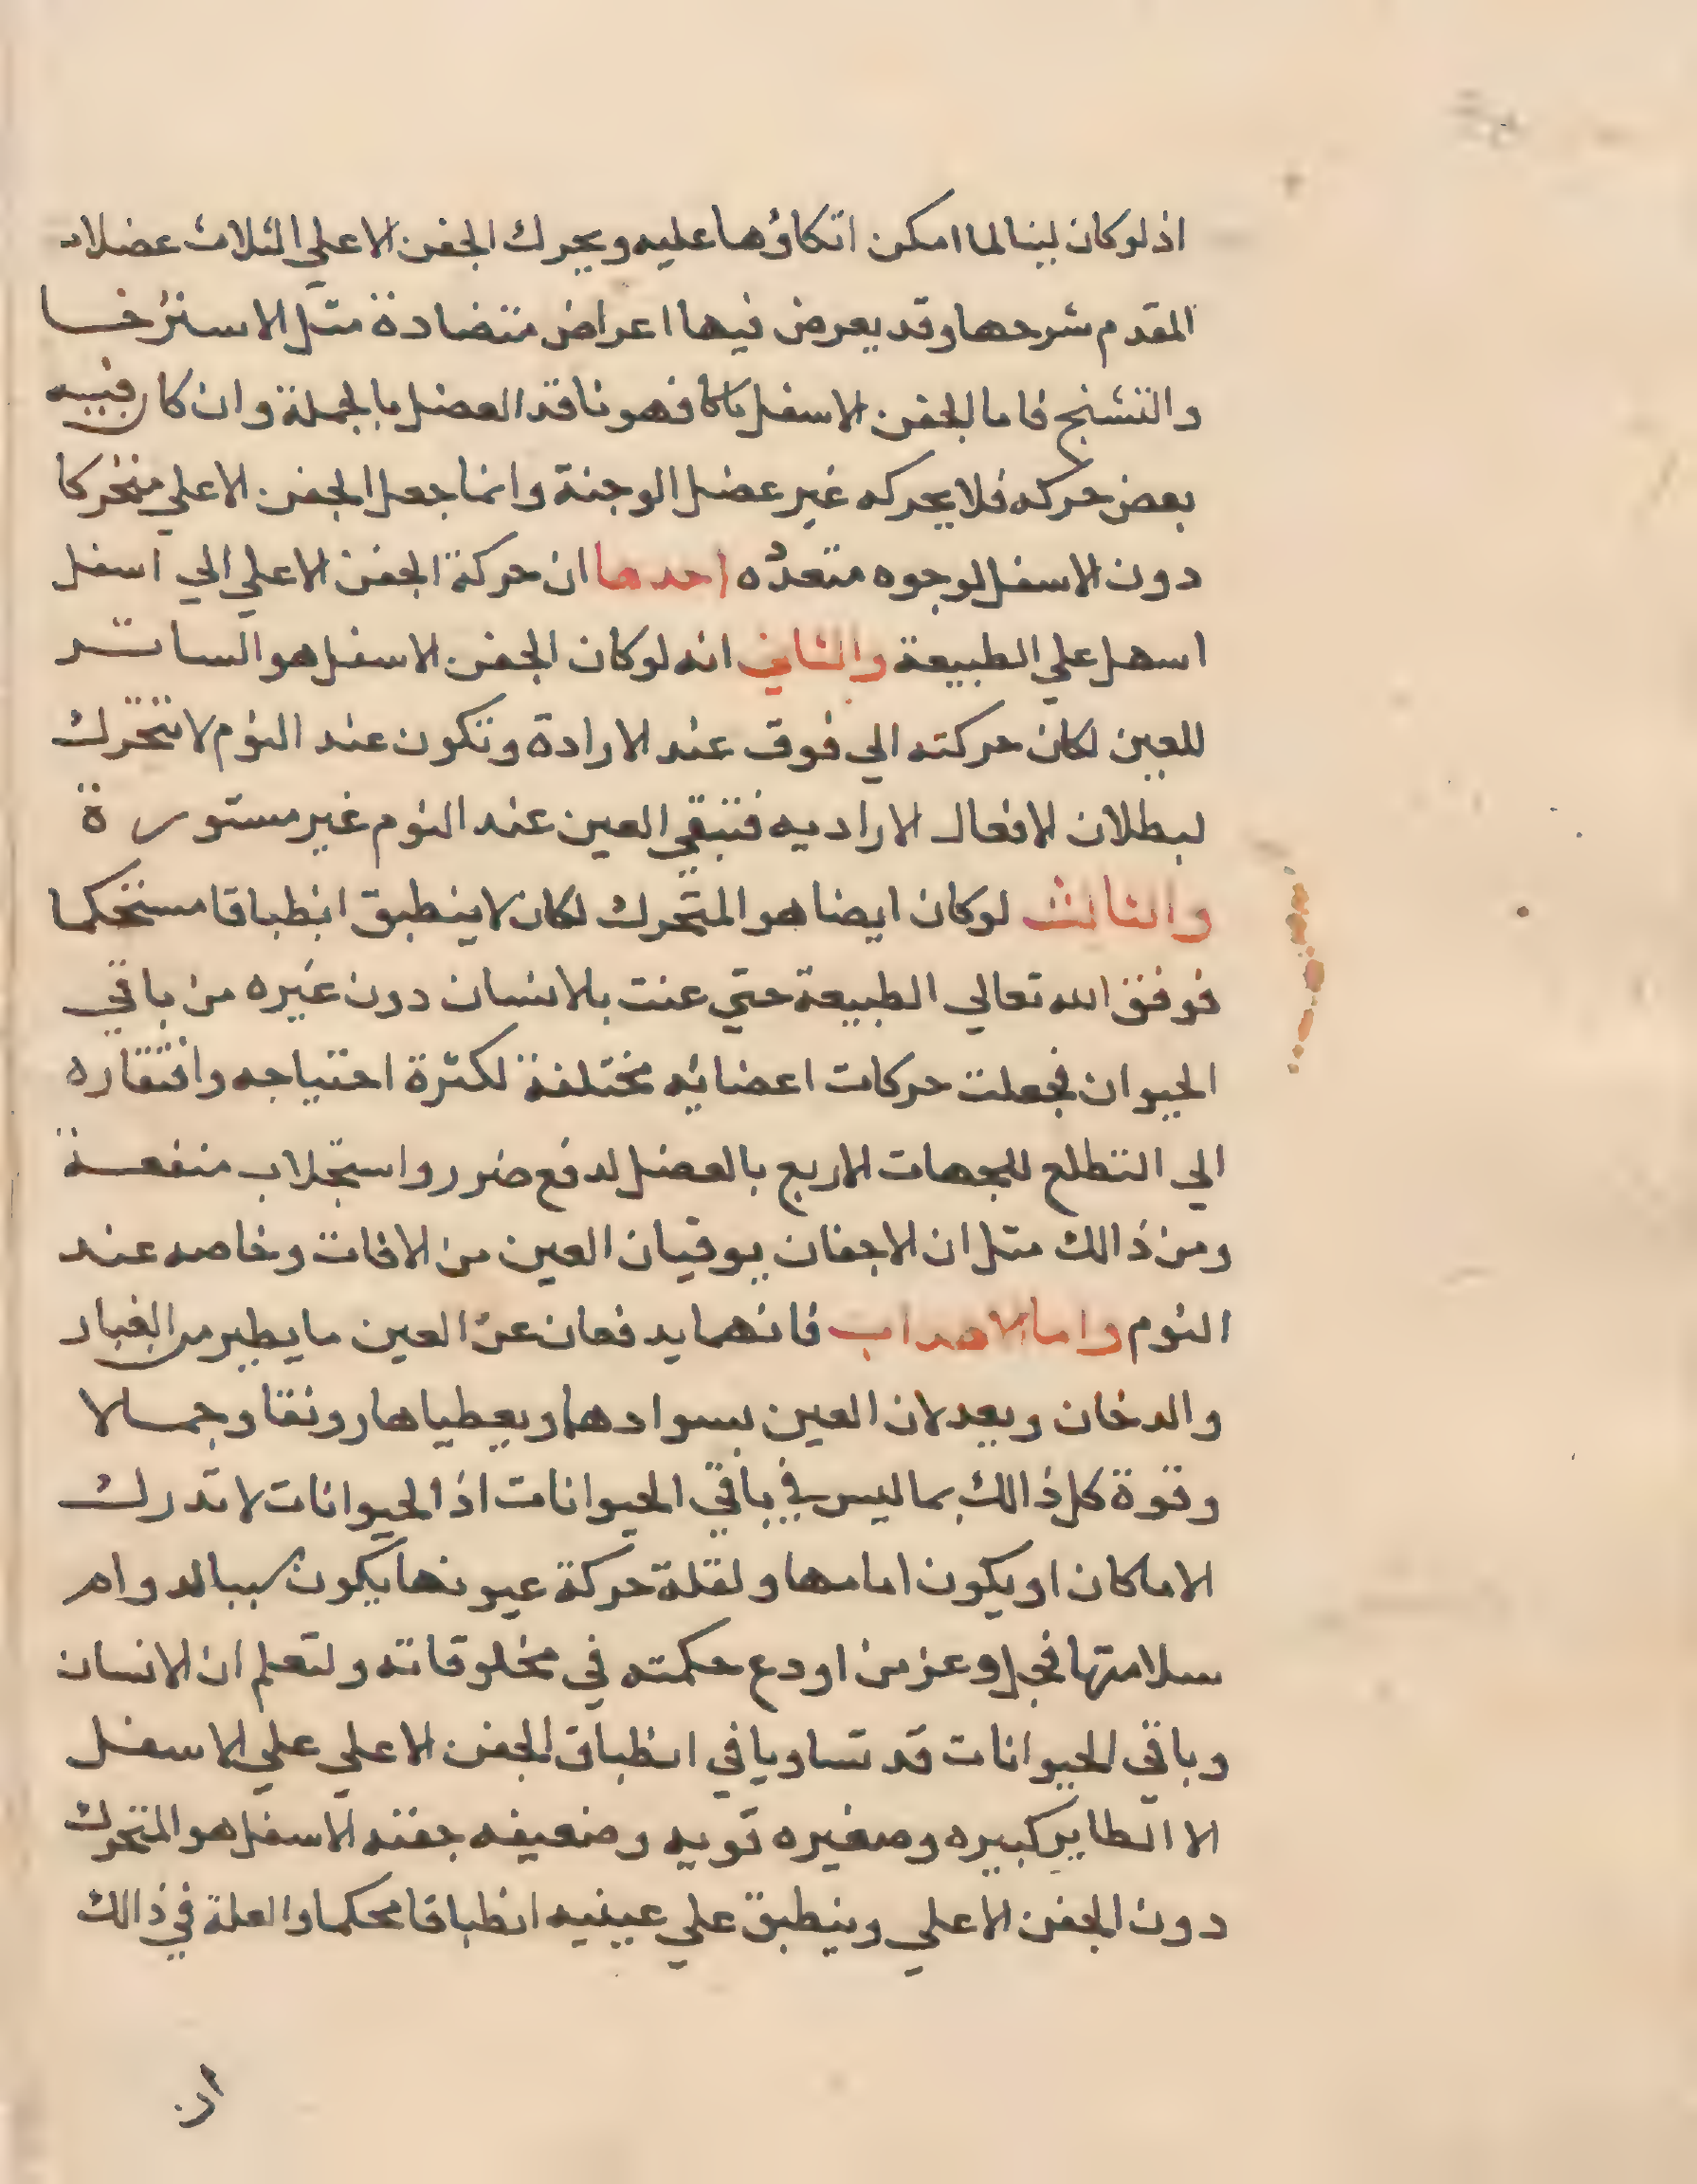 اذ لوكان لينا لما امكن اتكاؤها عليه ويحرك الجفن الاعلي الثلاث عضلات
المقدم شرحها وقد يعرض فيها اعراض متضادة مثل الاسترخا
والتشنج فاما الجفن الاسفل فهو فاقد العضل بالجملة وان كان فيه
بعض حركه فلا يحركه غير عضل الوجنة وانما جعل الجفن الاعلي متحركا
دون الاسفل لوجوه متعدده احدها ان حركة الجفن الاعلي الي اسفل
اسهل علي الطبيعة والثاني انه لوكان الجفن الاسفل هو الساتر
للعين لكان حركته الي فوق عند الارادة وتكون عند النوم لا تتحرك
لبطلان الافعال الاراديه فتبقي العين عند النوم غير مستورة
والثالث لوكان ايضا هو المتحرك لكان لا ينطبق انطباقا مستحكما
فوفق الله تعالي الطبيعة حتي عنت بالانسان دون غيره من باقي
الحيوان فجعلت حركات اعضائه مختلفة لكثرة احتياجه وافتقاره
الي التطلع للجهات الاربع بالعضل لدفع ضرر واستجلاب منفعة
ومن ذالك مثل ان الاجفان يوقيان العين من الافات وخاصه عند
النوم واما الاهداب فانهما يدفعان عن العين ما يطير من الغبار
والدخان ويعدلان العين بسوادهما ويعطياها رونقا وجمالا
وقوة كل ذالك بما ليس في باقي الحيوانات اذ الحيوانات لا تدرك
الا ماكان او يكون امامها ولقلة حركة عيونها يكون سببا لدوام
سلامتها فجل وعز من اودع حكمته في مخلوقاته ولتعلم ان الانسان
وباقي الحيوانات قد تساويا في انطباق الجفن الاعلي علي الاسفل
الا الطاير كبيره وصغيره قويه وضعيفه جفنه الاسفل هو المتحرك
دون الجفن الاعلي وينطبق علي عينيه انطباقا محكما والعلة في ذالك
ان